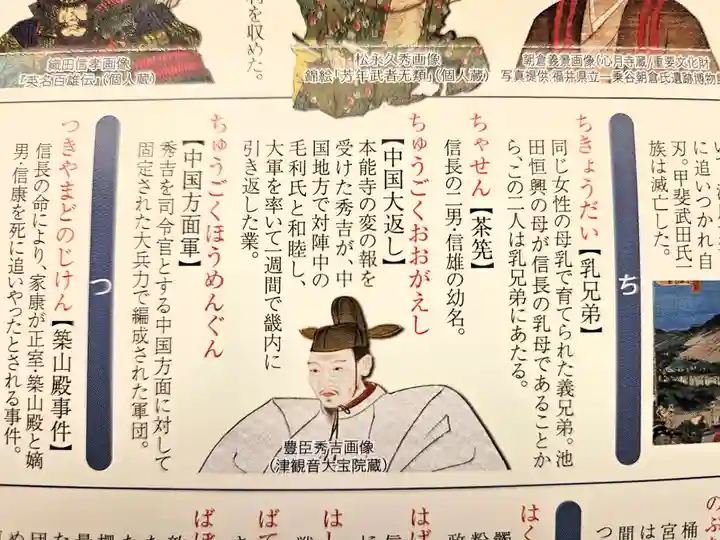 村を収めた。
織田信孝画像
『英名百雄伝』(個人蔵)
松永久秀画像
錦絵「芳年武者无類」(個人蔵)
朝倉義景画像(心月寺蔵)重要文化財
写真提供:福井県立一乗谷朝倉氏遺跡博物
に追いつかれ自
刃。甲斐武田氏一
族は滅亡した。
ち
ちきょうだい【乳兄弟】
同じ女性の母乳で育てられた義兄弟。池
田恒興の母が信長の乳母であることか
ら、この二人は乳兄弟にあたる。
ちゃせん【茶筅】
信長の二男・信雄の幼名。
ちゅうごくおおがえし
【中国大返し】
本能寺の変の報を
受けた秀吉が、中
国地方で対陣中の
毛利氏と和睦し、
大軍を率いて一週間で畿内に
引き返した業。
豊臣秀吉画像
(津観音大宝院蔵)
ちゅうごくほうめんぐん
【中国方面軍】
秀吉を司令官とする中国方面に対して
固定された大兵力で編成された軍団。
つ
つきやまどのじけん【築山殿事件】
信長の命により、家康が正室・築山殿と嫡
男・信康を死に追いやったとされる事件。
のぶ
桶
宮
は
間
つ
はく
はば
はし
ばて
ばぼ